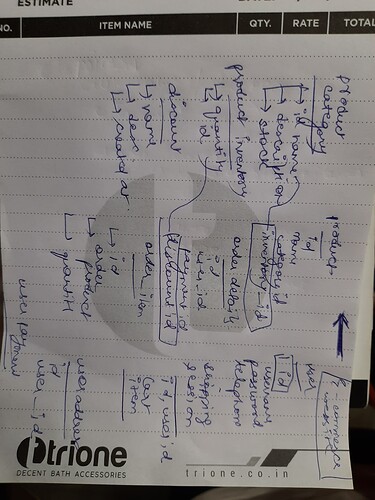 ESTIMATE
NO.
ITEM NAME
QTY.
RATE
TOTAL
E-commerce
website
user
id
username
password
telephone
shopping
session
id, user id
cart
item
user address
id
user_id
user payment
product
id
name
category id
inventory_id
order details
id
user_id
payment id
discount id
order_item
id
order
product
quantity
product
category
id name
description
stock
product inventory
quantity
id
discount
name
desc
created at
trione
DECENT BATH ACCESSORIES
trione.co.in